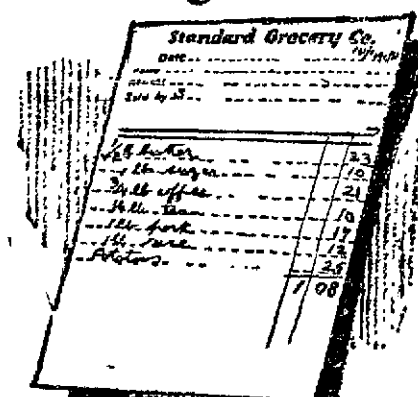 Standard Grocery Co.
Date
Sold by
butter 23
1 lb sugar 10
lb coffee 21
lb Tea 10
1 lb pork 17
1 lb rice 12
Potatoes 25
1 08